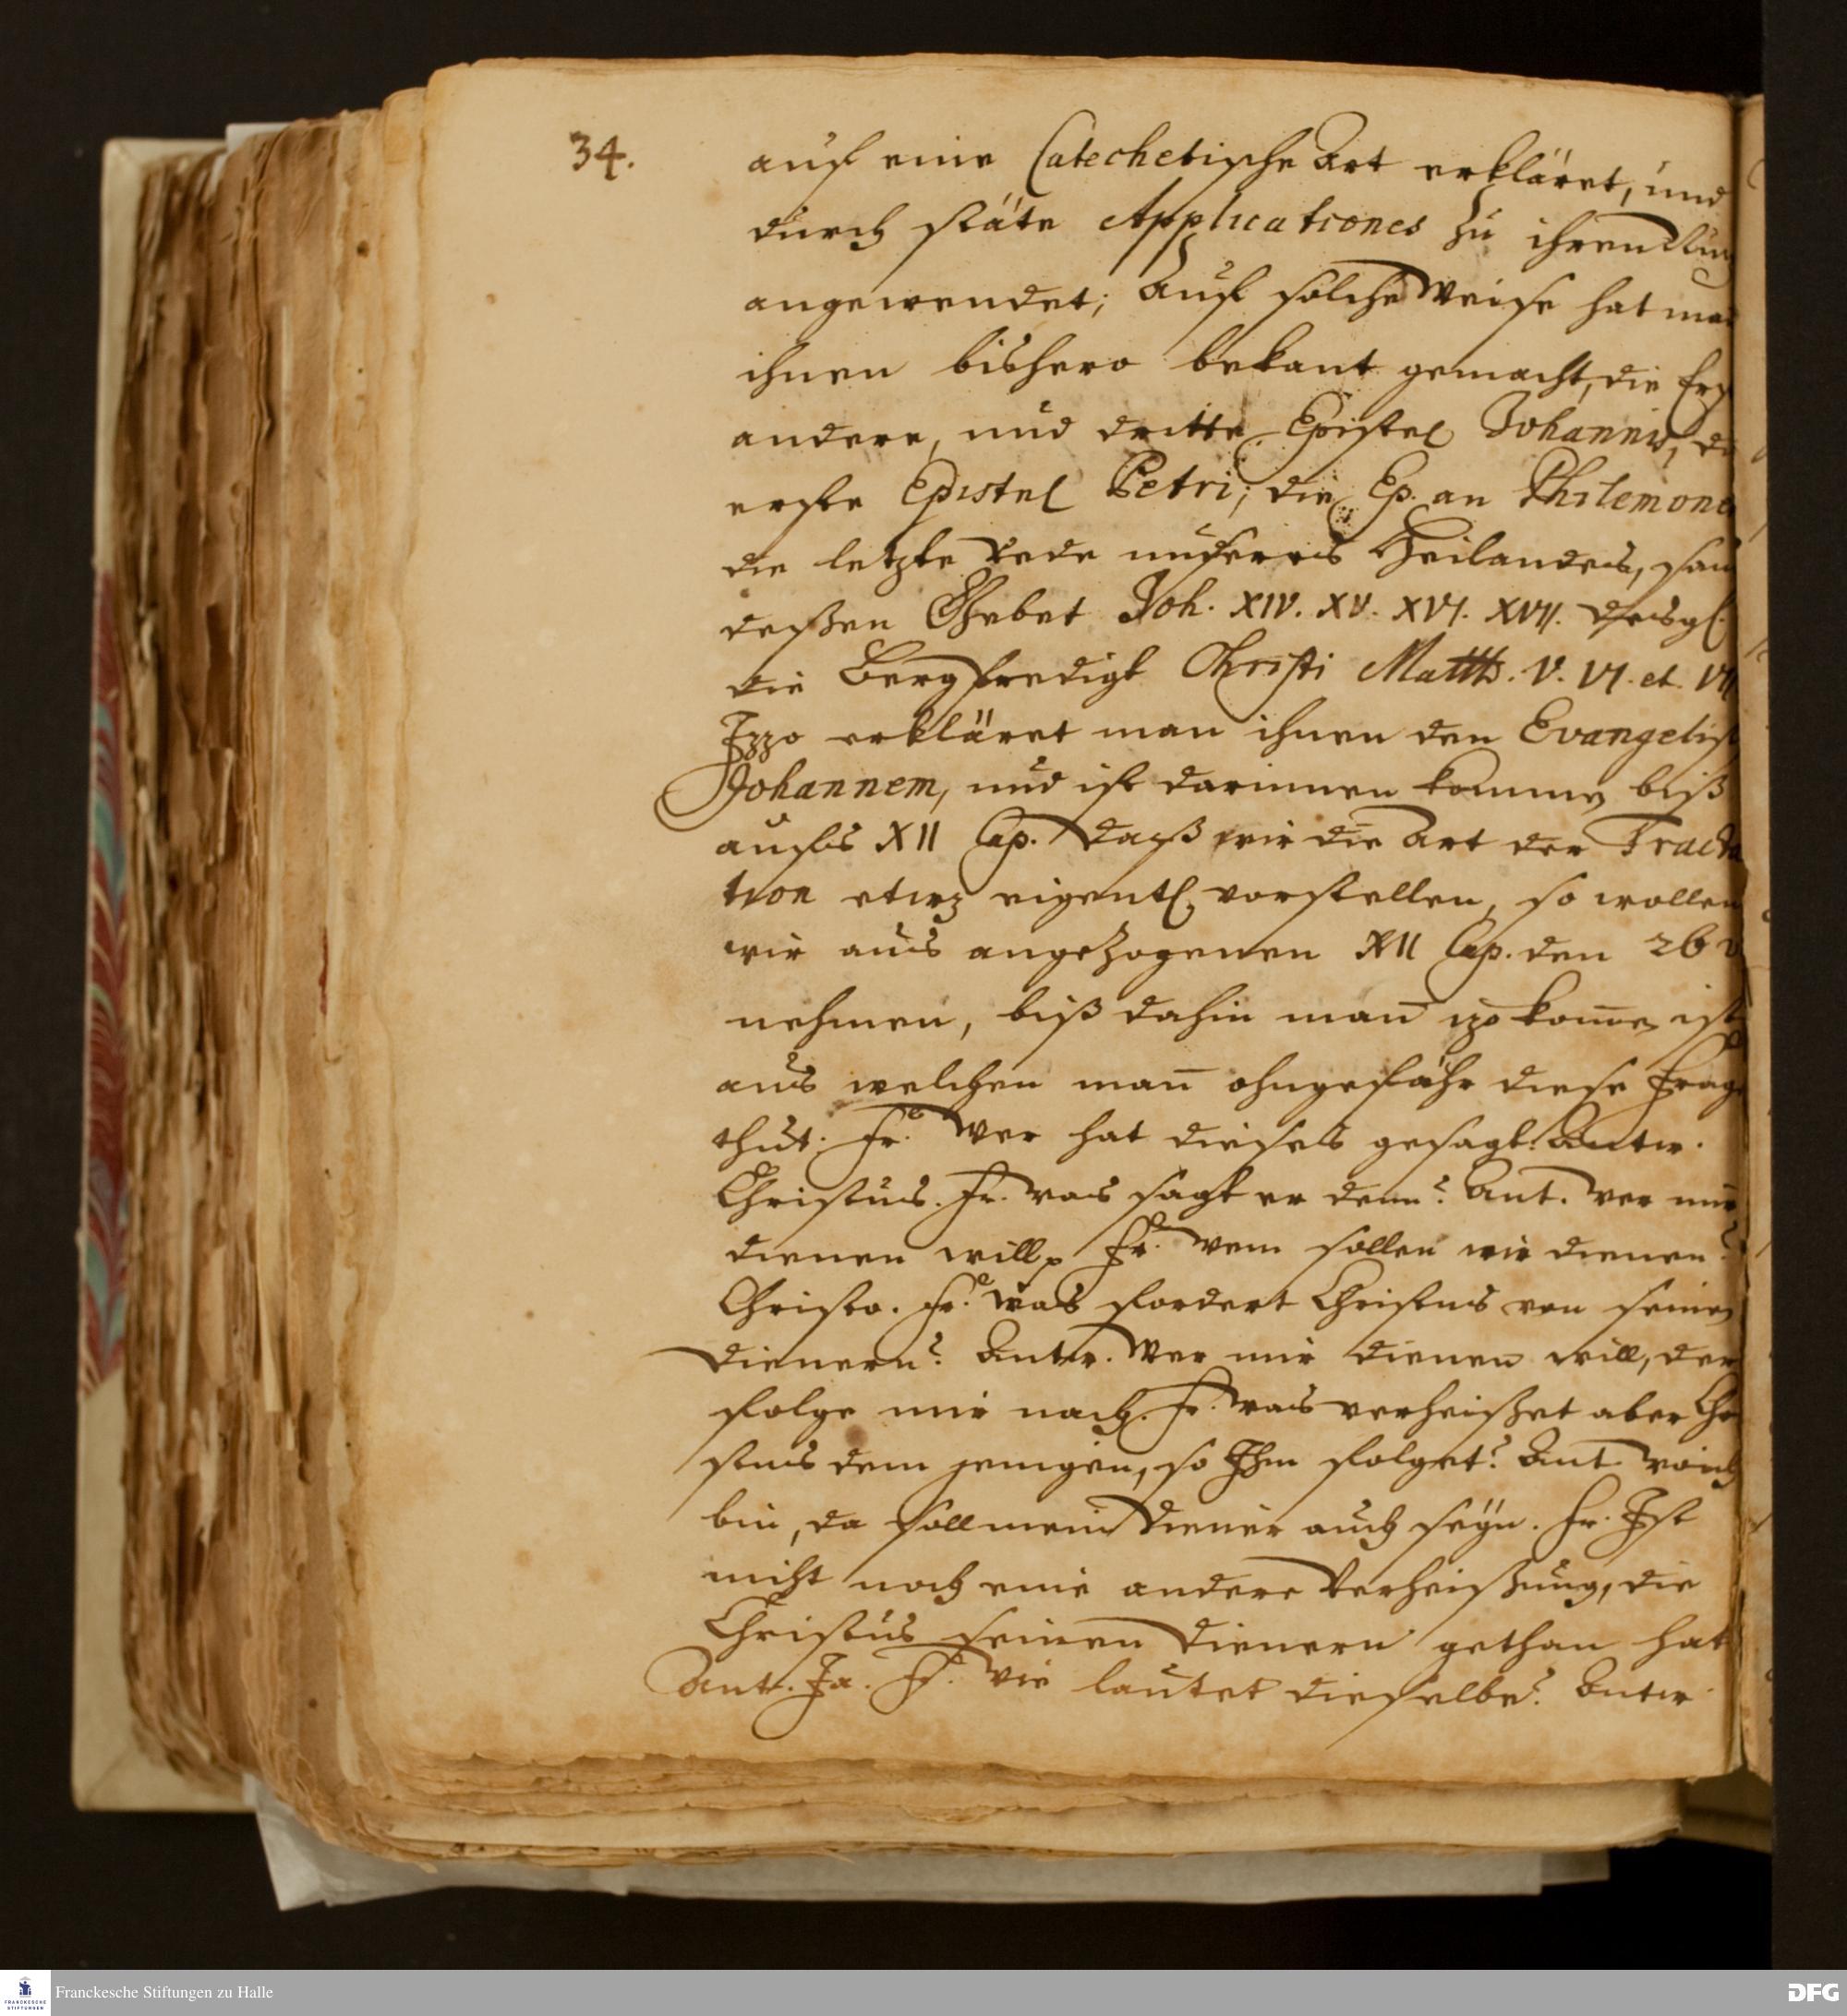 34.
auf eine Catechetische Art erkläret, und
durch stäte Applicationes zu ihren
angewendet; Auf solche Weise hat man
ihnen bishero bekant gemacht, die
andere, und dritte Epistel Johannis,
erste Epistel Petri; die Ep. an Philemone
die letzte Rede unseres Heilandes, sam
deßen Gebet Joh. XIV. XV. XVI. XVII. desgl.
die Bergpredigt Christi Matth. V. VI. et. VII
Izzo erkläret man ihnen den Evangelist
Johannem, und ist darinnen kommen biß
aufs XII Cap. daß wir die Art der Tracta
tion etwz eigentl. vorstellen, so wollen
wir aus angezogenen XII Cap. den 26 v
nehmen, biß dahin man izo komen ist
aus welchen man ohngefähr diese Frage
thut. Fr. Wer hat dieses gesagt? Antw.
Christus. Fr. Was sagt er denn? Ant. Wer mir
dienen will Fr. Wem sollen wir dienen?
Christo. Fr. Was fordert Christus von seinen
Dienern? Antw. Wer mir dienen will, der
folge mir nach. Fr. Was verheißet aber Chri
stus dem jenigen, so Ihm folget? Ant wo ich
bin, da soll mein Diener auch seyn. Fr. Ist
nicht noch eine andere Verheißung, die
Christus seinen Dienern gethan hat
Ant. Ja. Fr. Wie lautet dieselbe? Antw.
Franckesche Stiftungen zu Halle
FRANCKESCHE STIFTUNGEN
DFG